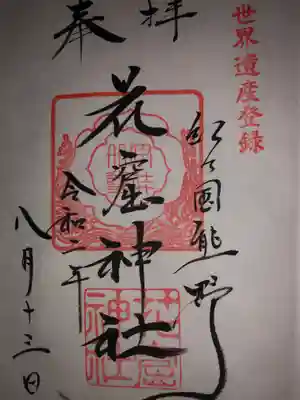 世界遺産登録
奉拝
紀国熊野
花窟神社
令和二年
八月十三日
花窟
神社